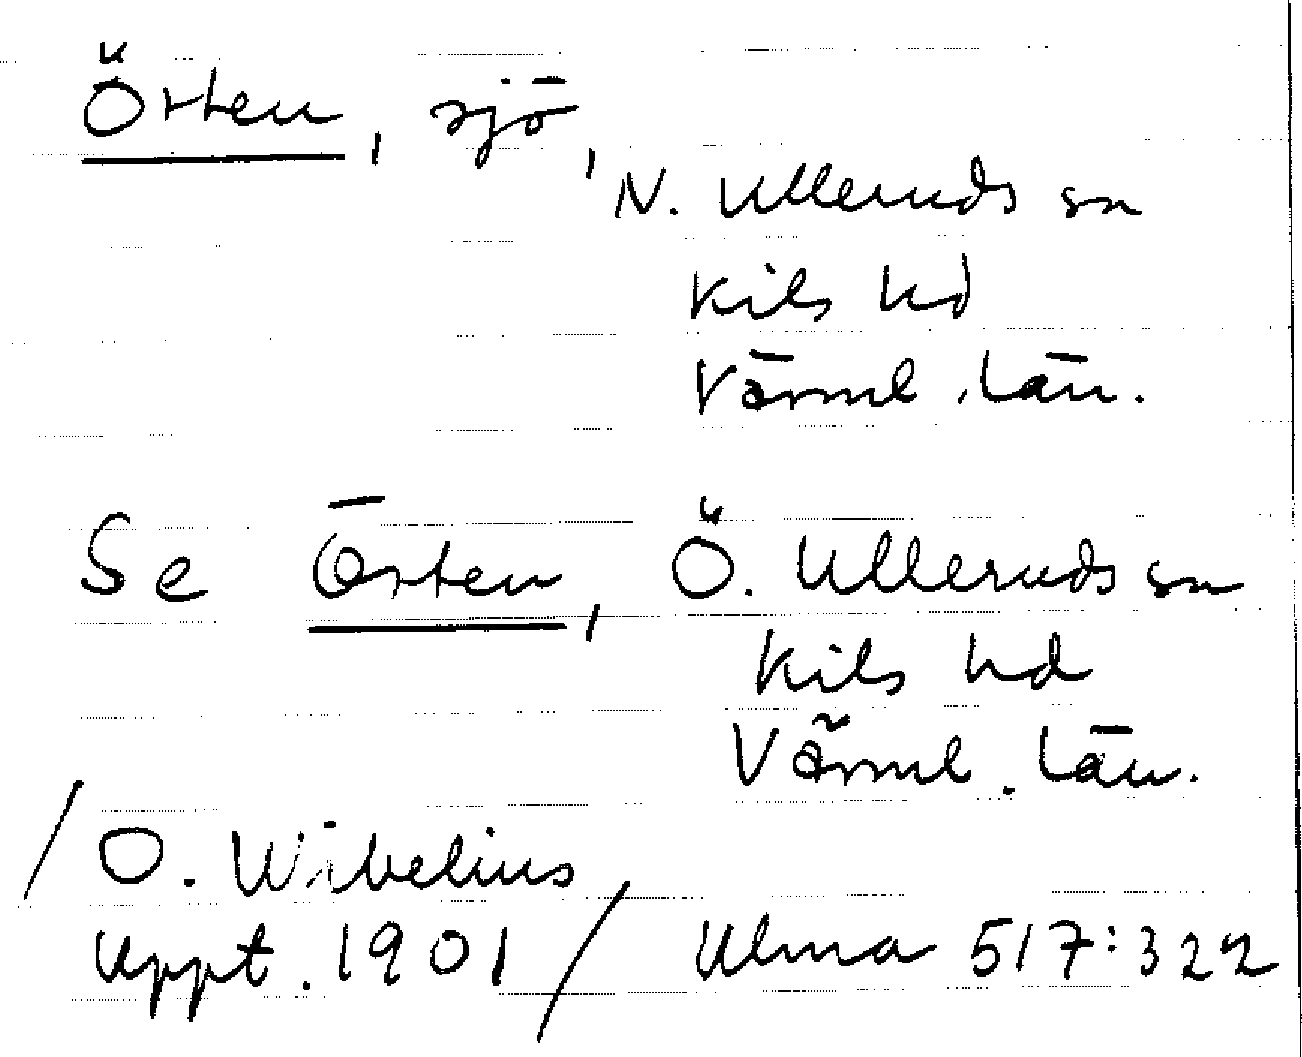 Örten, sjö,
N. Ulleruds sn
Kils hd
Värml. län.
Se Örten, Ö. Ulleruds sn
Kils hd
Värml. län.
/O. Wibelius
Uppt. 1901/ Ulma 517:322